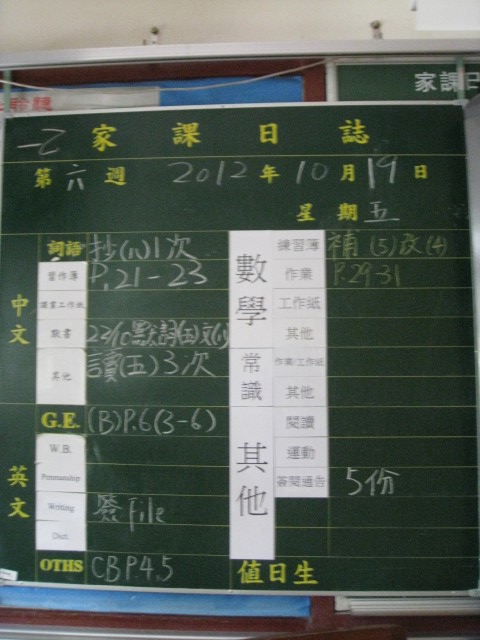 家課日
一乙 家課日誌
第六週 2012年10月19日
星期五
中文
詞語 抄(八)1次
習作簿 P.21-23
課業工作紙
默書 23/10默詞(五)文(八)
其他 讀(五)3次
英文
G.E. (B)P.6(3-6)
W.B.
Penmanship
Writing 簽File
Dict.
OTHS CB P.4,5
數學
練習簿 補(5)改(4)
作業 P.29-31
工作紙
其他
常識
作業/工作紙
其他
其他
閱讀
運動
簽閱通告 5份
值日生